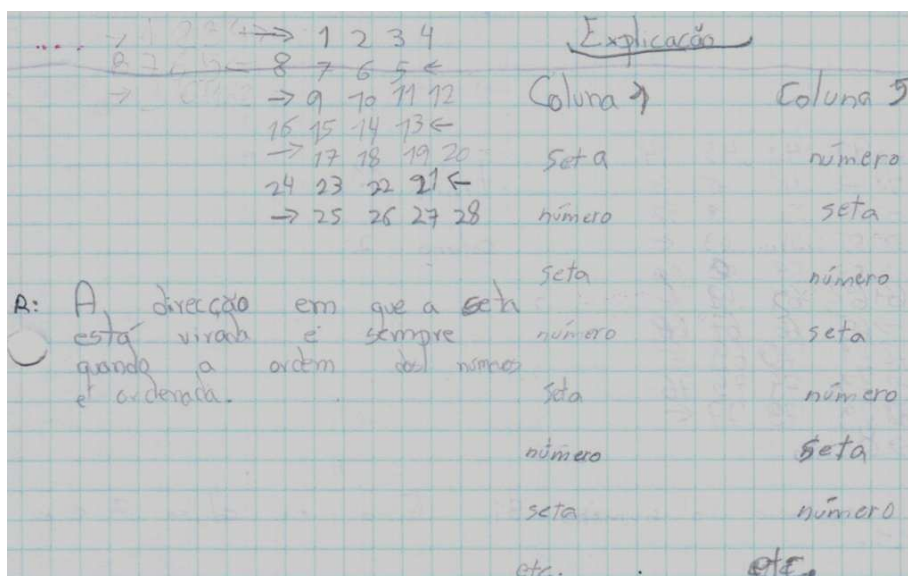 → 1 2 3 4
8 7 6 5 ←
→ 9 10 11 12
16 15 14 13 ←
→ 17 18 19 20
24 23 22 21 ←
→ 25 26 27 28
R: A direcção em que a seta
está virada é sempre
quando a ordem dos números
é ordenada.
Explicação
Coluna 1 Coluna 5
seta número
número seta
seta número
número seta
seta número
número seta
seta número
etc. etc.